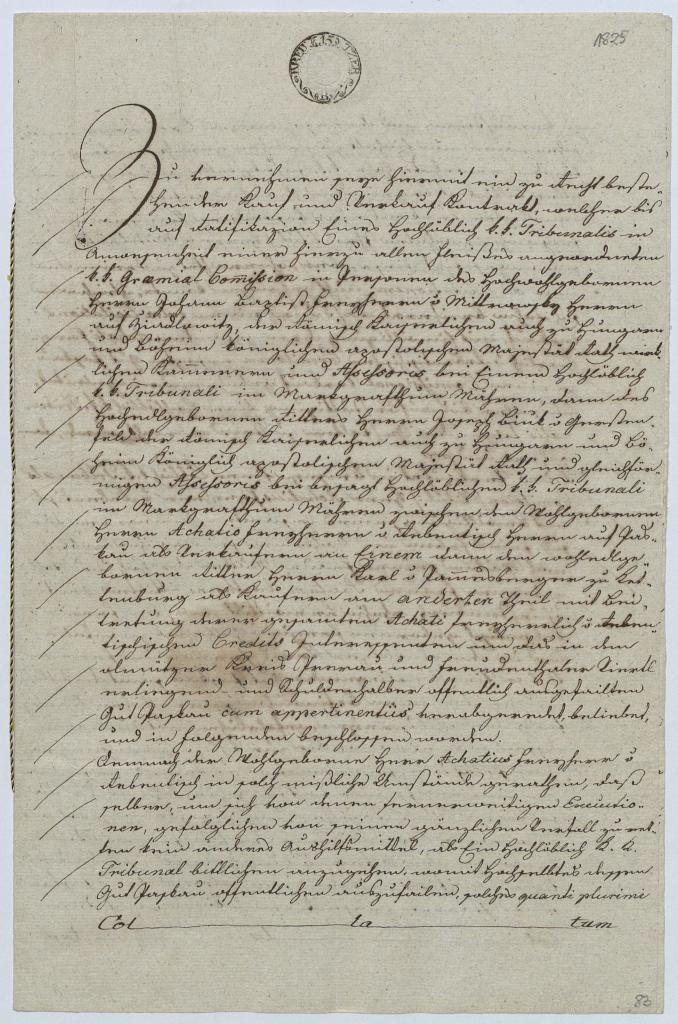 1825
15 KREUTZER
Zu vernehmen seye hiermit ein zu Recht beste-
hender Kauf und Verkauf Kontrakt, welcher bis
auf Ratifikazion Eines Hochlöblich k. k. Tribunalis in
Anwesenheit einer hierzu allen Fleißes angeordneten
k. k. Gremial Comission in Personen des Hochwohlgebornen
Herrn Johann Baptist Freyherrn v Mittrowsky Herrn
auf Ziadlowitz, der Römisch Kaiserlichen auch zu Hungarn
und Böheim Königlichen apostolischen Majestät Rath, wirk-
lichen Kämmerern und Assessoris bei Einem Hochlöblich
k. k. Tribunali im Markgrafthum Mähren, dann des
Hochedlgebornen Ritters Herrn Joseph v Gersten-
feld der Römisch Kaiserlichen auch zu Hungarn und Bö-
heim Königlich apostolischen Majestät Rath und gleichför-
migen Assessoris bei besagt Hochlöblichen k. k. Tribunali
im Markgrafthum Mähren zwischen dem Wohlgebornen
Herrn Achatio Freyherrn v Rebentisch Herrn auf Pas-
kau als Verkäufern an Einem dann dem wohledlge-
bornen Ritter Herrn Karl v zu Ket-
lenburg als Käufern am anderten Theil mit Bei-
tretung derer gesamten Achati Freyherrlich v Reben-
tischischen Credits Interessenten um das in dem
olmützer Kreis Prerau und Freudenthaler Viertl
erliegend und Schuldenhalber öffentlich ausgefailten
Gut Paskau cum appertinentiis verabgeredet, beliebet,
und in folgenden beschlossen worden.
Demnach der Wohlgeborne Herr Achatius Freyherr v
Rebentisch in solch mißliche Umstände gerathen, daß
selber, um sich von denen fernerweitigen Executio-
nen, gefolglichen von seinen gänzlichen Verfall zu ret-
ten kein anderes Aushilfsmittel, als Ein Hochlöblich k. k.
Tribunal bittlichen anzugehen, womit Hochselbtes dessen
Gut Paskau öffentlichen auszufailen, solches quanti plurimi
Col la tum
83